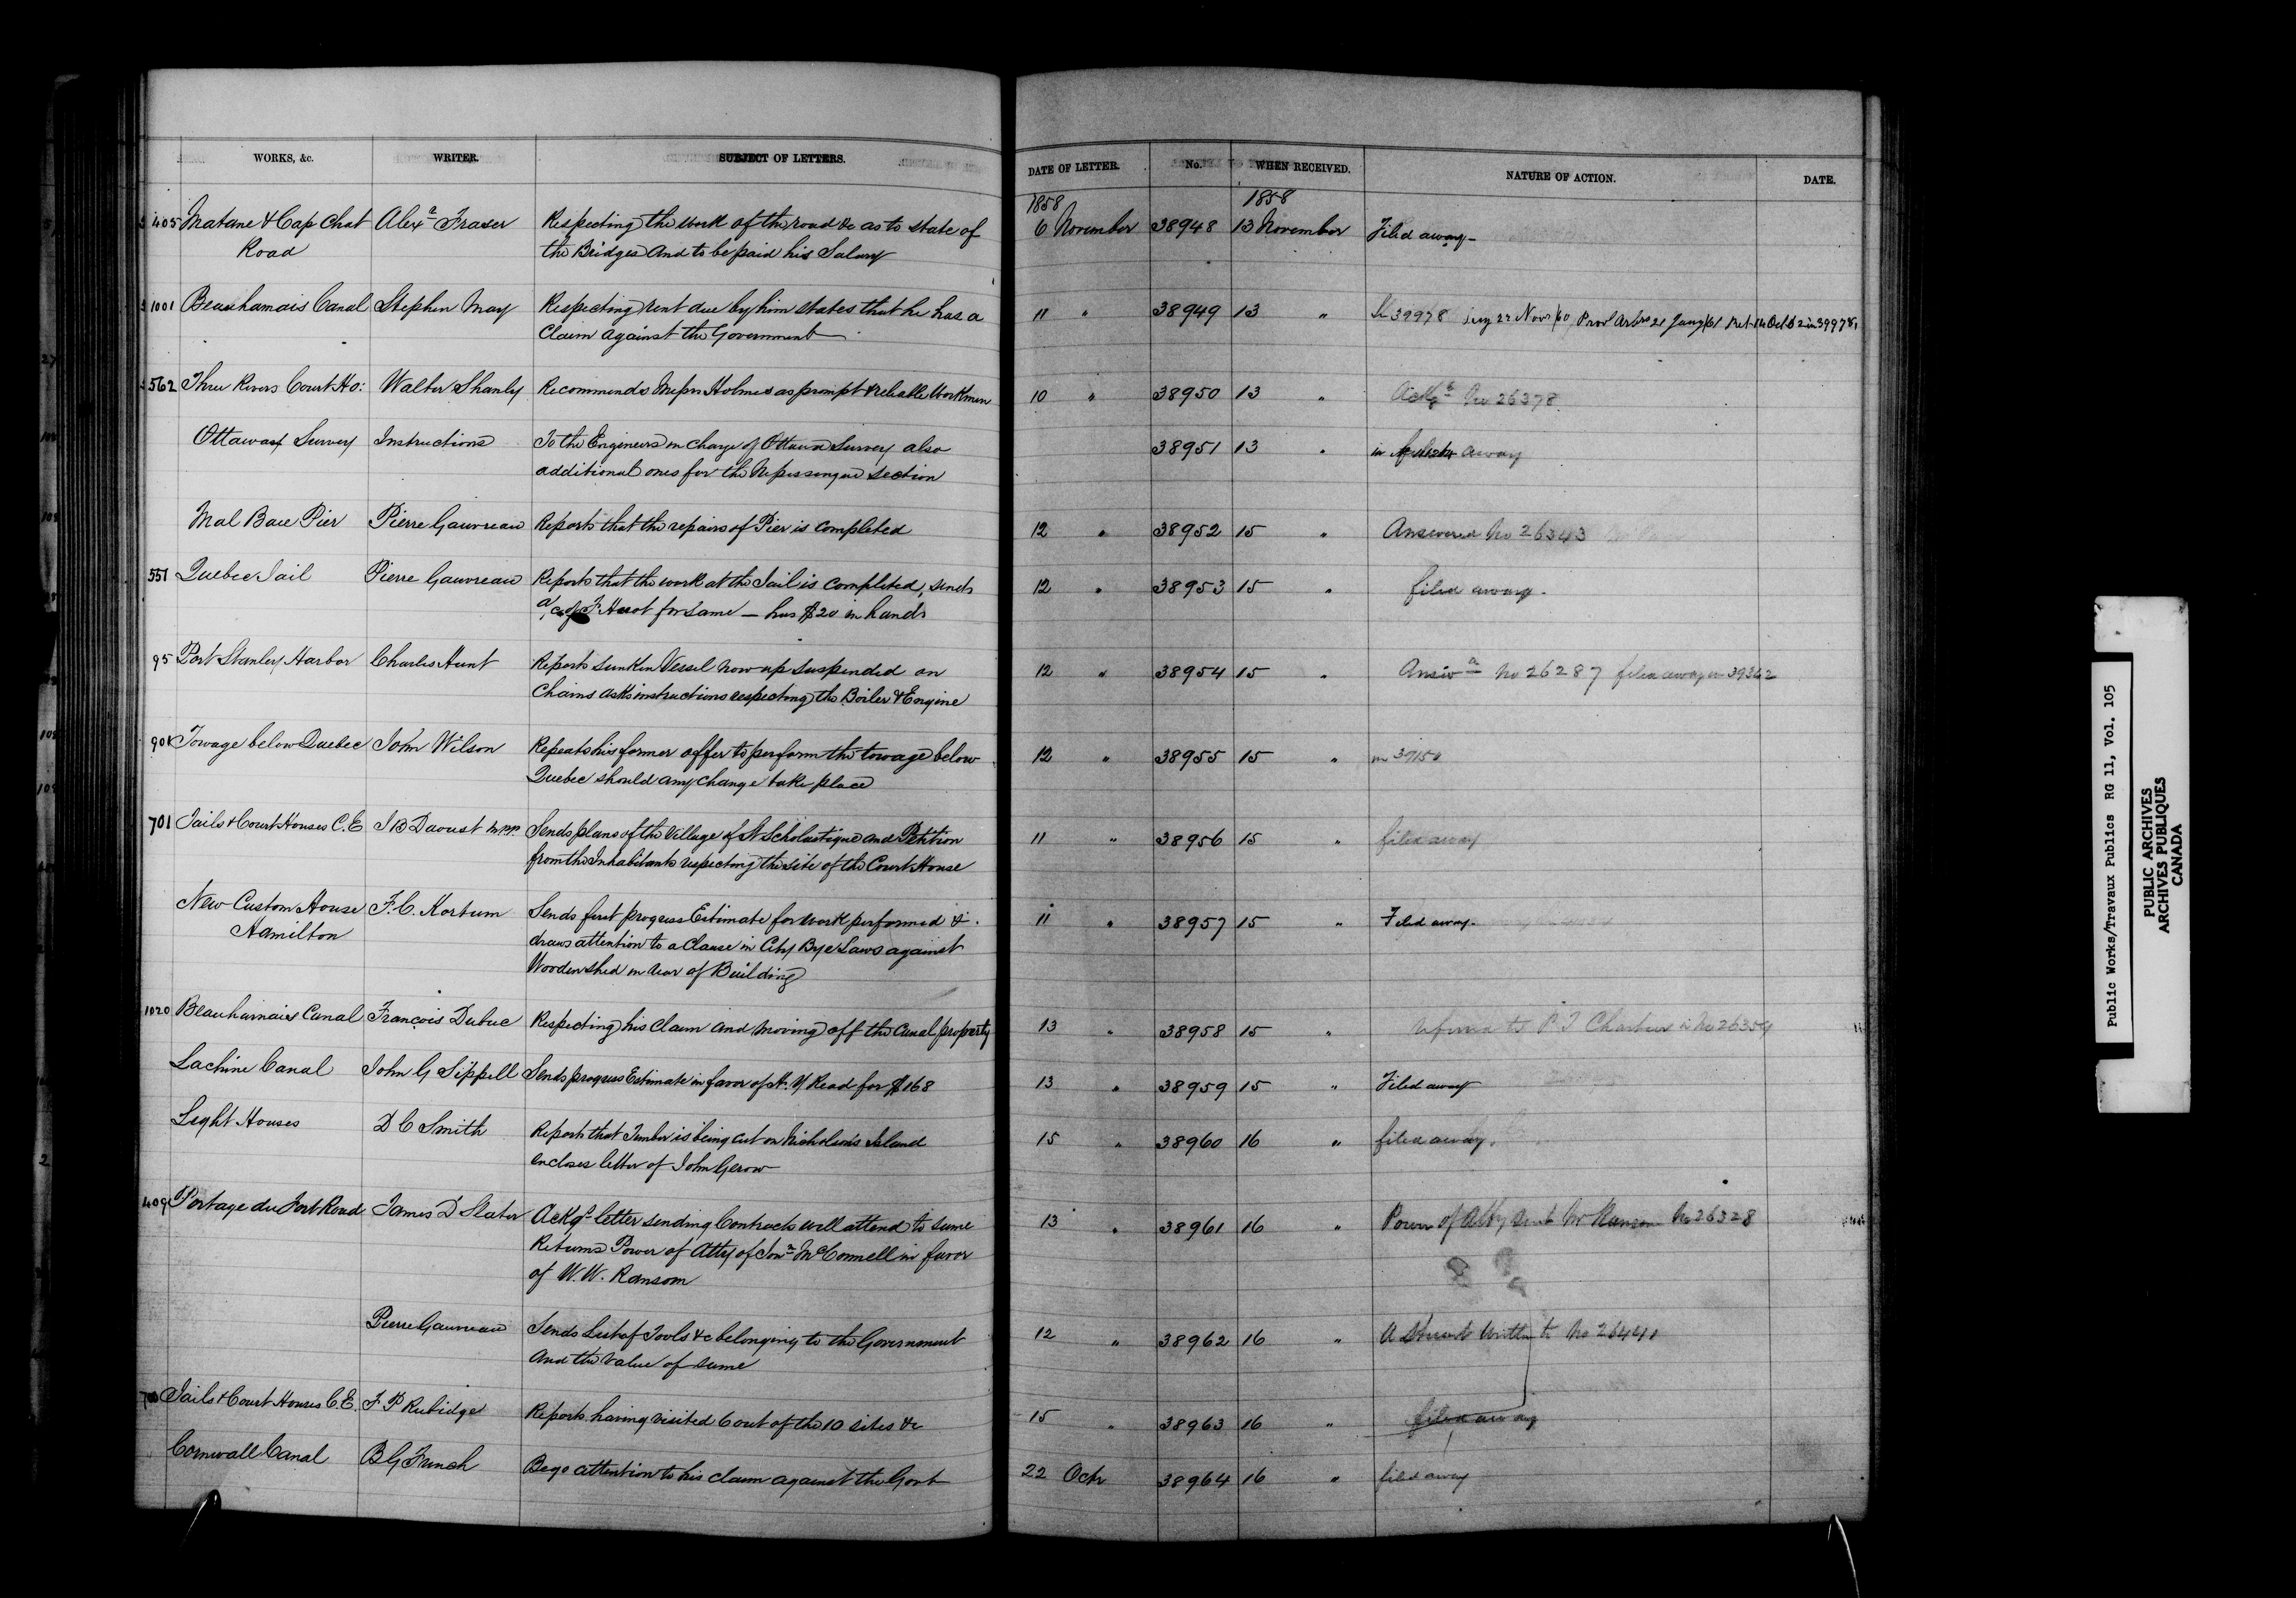 WORKS, &c. WRITER. SUBJECT OF LETTERS. DATE OF LETTER. No. WHEN RECEIVED. NATURE OF ACTION. DATE.
1858 1858
405 Matane & Cap Chat Alexr Fraser Respecting the work of the road &c as to state of 6 November 38948 13 November Filed away -
Road the Bridges and to be paid his Salary
1001 Beauharnais Canal Stephen May Respecting rent due by him states that he has a 11 " 38949 13 " 39978 22 Novr /60 Provl Arbrs 21 Jany /61 Ret 14 Oct 62 in 39978
Claim against the Government
562 Three Rivers Court Ho: Walter Shanly Recommends Messrs Holmes as prompt & reliable Workmen 10 " 38950 13 " Ackgd No 26378
Ottawa Survey Instructions To the Engineers in charge of Ottawa Survey also 38951 13 " in away
additional ones for the Nipissingue section
Mal Baie Pier Pierre Gauvreau Reports that the repairs of Pier is completed 12 " 38952 15 " Answered No 26343
551 Quebec Jail Pierre Gauvreau Reports that the work at the Jail is completed, sends 12 " 38953 15 " filed away -
a/c of F Huot for same — has $20 in hands
95 Port Stanley Harbor Charles Hunt Reports sunken Vessel now up suspended on 12 " 38954 15 " Answd No 26287 filed away in 39362
Chains asks instructions respecting the Boiler & Engine
901 Towage below Quebec John Wilson Repeats his former offer to perform the towage below 12 " 38955 15 " in 39150
Quebec should any change take place
701 Jails & Court Houses C.E J B Daoust M.P.P. Sends plans of the Village of St Scholastique and Petition 11 " 38956 15 " filed away
from the Inhabitants respecting the site of the Court House
New Custom House F. C. Kortum Sends first progress Estimate for work performed & 11 " 38957 15 " Filed away -
Hamilton draws attention to a Clause in City Bye Laws against
Wooden shed in rear of Building
1020 Beauharnais Canal François Dubuc Respecting his claim and moving off the Canal property 13 " 38958 15 " referred to P J in No 26359
Lachine Canal John G Sippell Sends progress Estimate in favor of H. Y Read for $168 13 " 38959 15 " Filed away
Light Houses D C Smith Reports that Timber is being cut on Nicholson's Island 15 " 38960 16 " filed away.
encloses letter of John Gerow
409 Portage du Fort Road James D Slater Ackgs letter sending Contracts will attend to same 13 " 38961 16 " Power of Atty sent Mr Ransom No 26328
Returns Power of Atty of Jonn McConnell in favor
of W. W. Ransom
Pierre Gauvreau Sends List of Tools &c belonging to the Government 12 " 38962 16 " A Stuart written to No 26441
and the value of same
Jails & Court Houses C.E. F P Rubidge Reports having visited 6 out of the 10 sites &c 15 " 38963 16 " filed away
Cornwall Canal B G French Begs attention to his claim against the Govt 22 Octr 38964 16 " filed away
Public Works/Travaux Publics RG 11, Vol. 105
PUBLIC ARCHIVES
ARCHIVES PUBLIQUES
CANADA